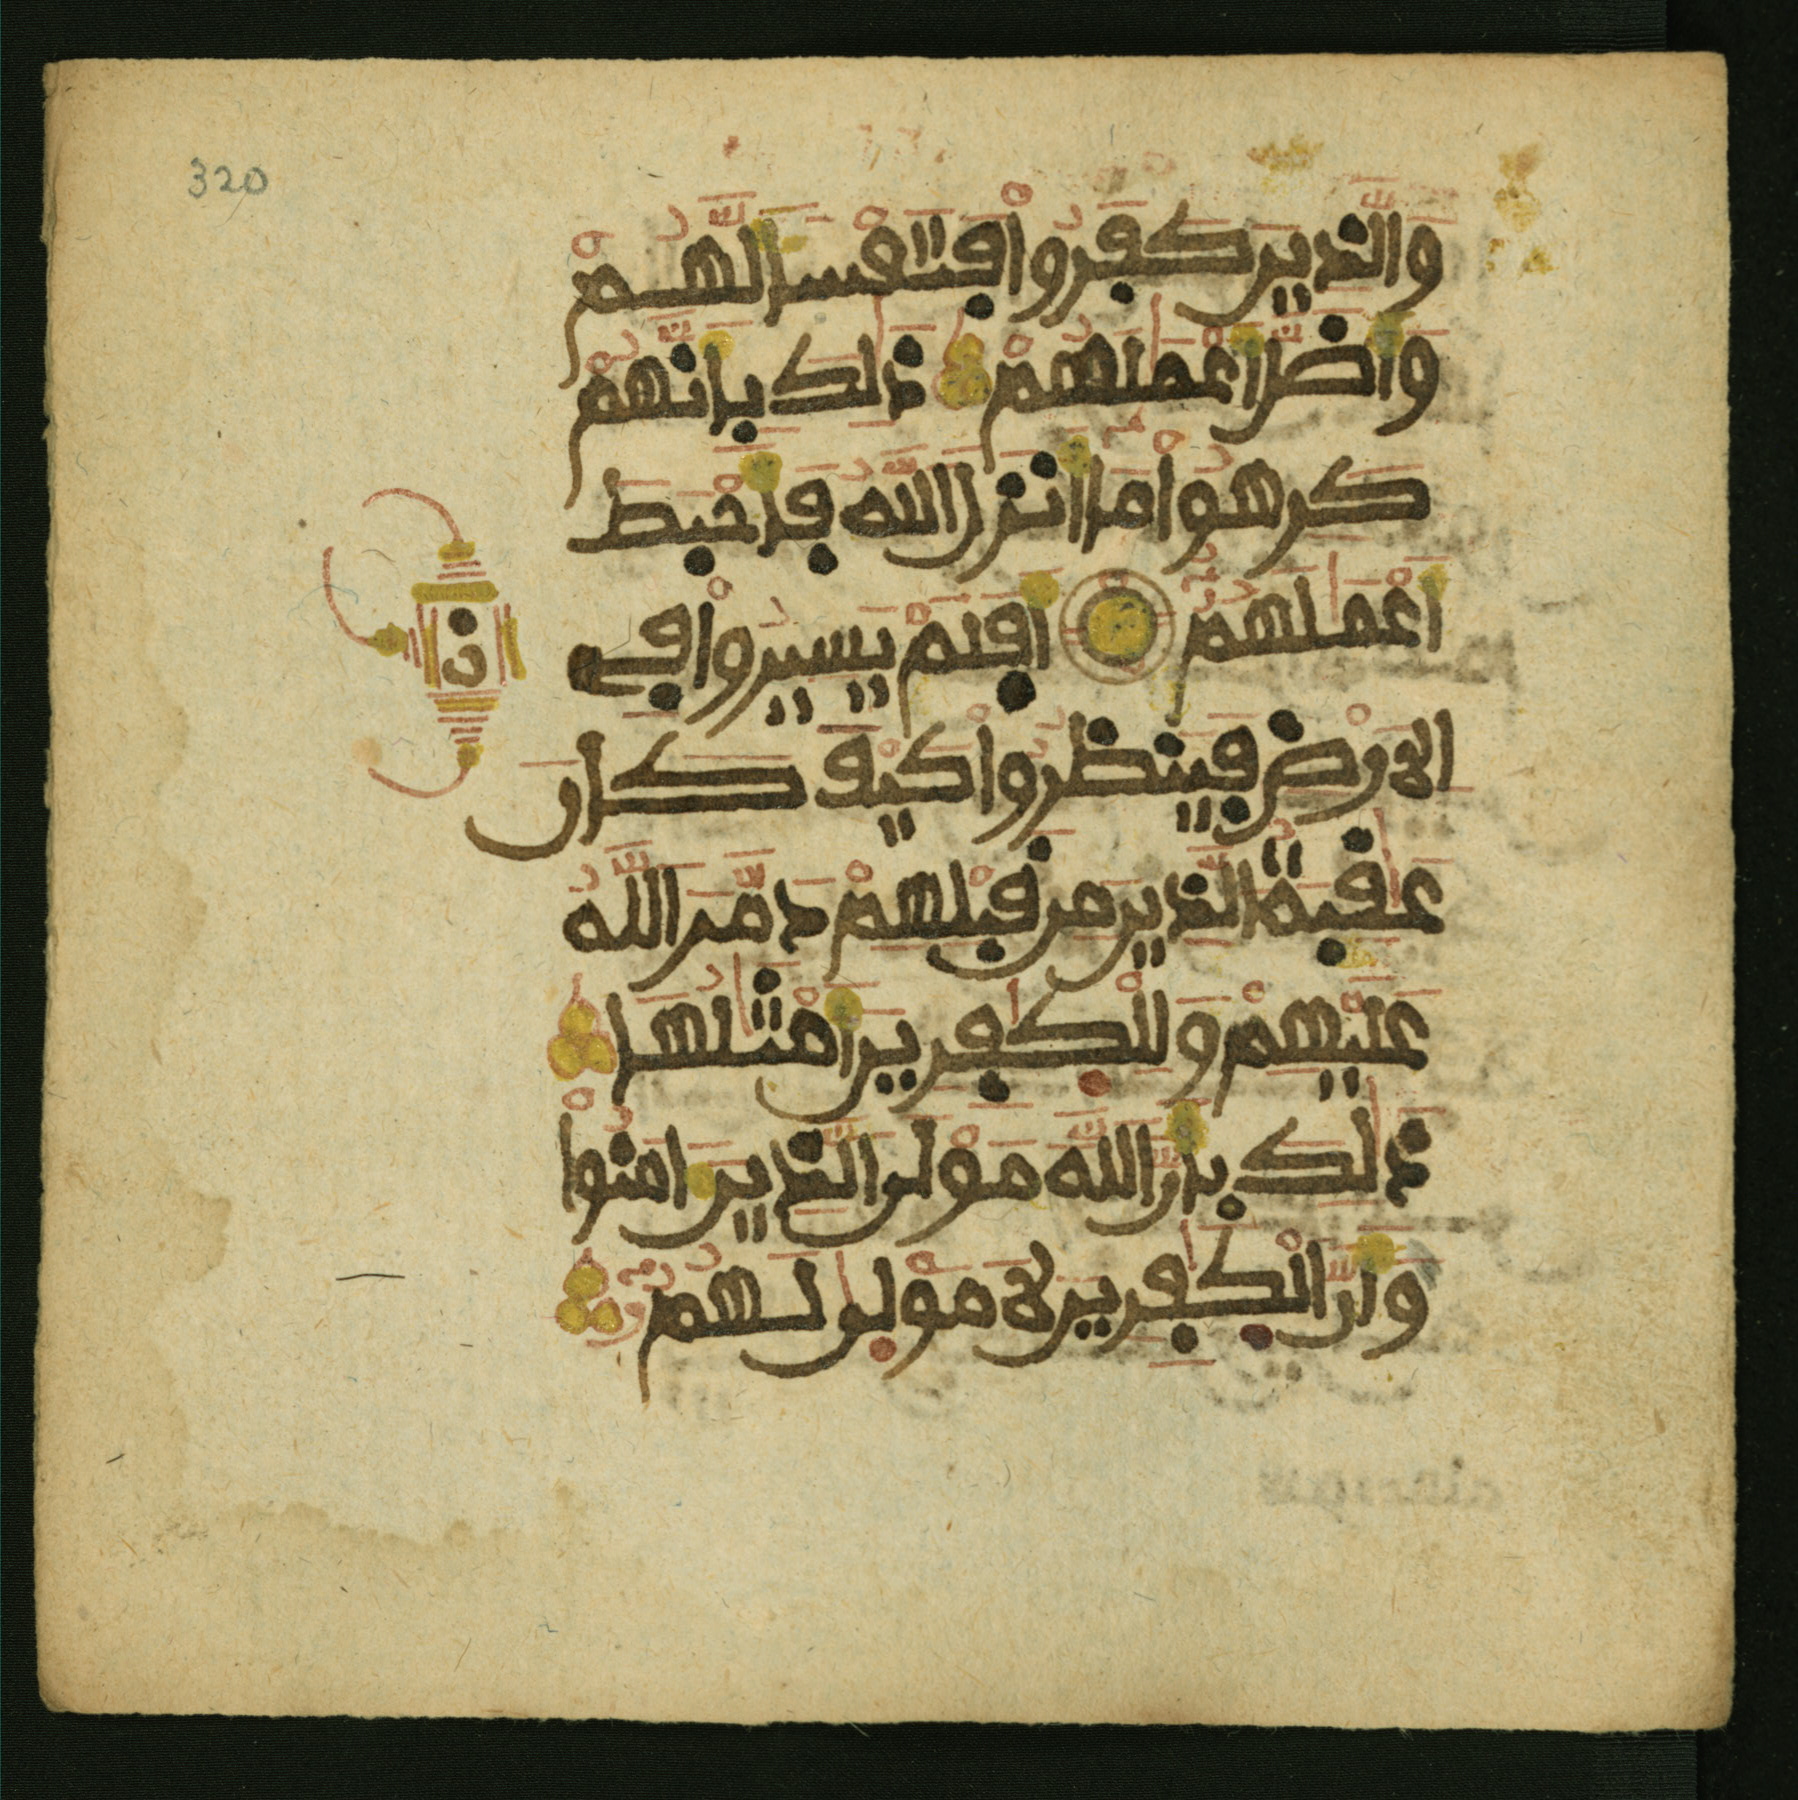 320
وَالَّذِينَ كَفَرُواْ فَتَعْسًا لَّهُمْ
وَأَضَلَّ أَعْمَٰلَهُمْ ذَٰلِكَ بِأَنَّهُمْ
كَرِهُواْ مَا أَنزَلَ اللَّهُ فَأَحْبَطَ
أَعْمَٰلَهُمْ أَفَلَمْ يَسِيرُواْ فِي
الَارْضِ فَيَنظُرُواْ كَيْفَ كَانَ
عَٰقِبَةُ الَّذِينَ مِن قَبْلِهِمْ دَمَّرَ اللَّهُ
عَلَيْهِمْ وَلِلْكَٰفِرِينَ أَمْثَٰلُهَا
ذَٰلِكَ بِأَنَّ اللَّهَ مَوْلَى الَّذِينَ ءَامَنُواْ
وَأَنَّ الْكَٰفِرِينَ لَا مَوْلَىٰ لَهُمْ
ن